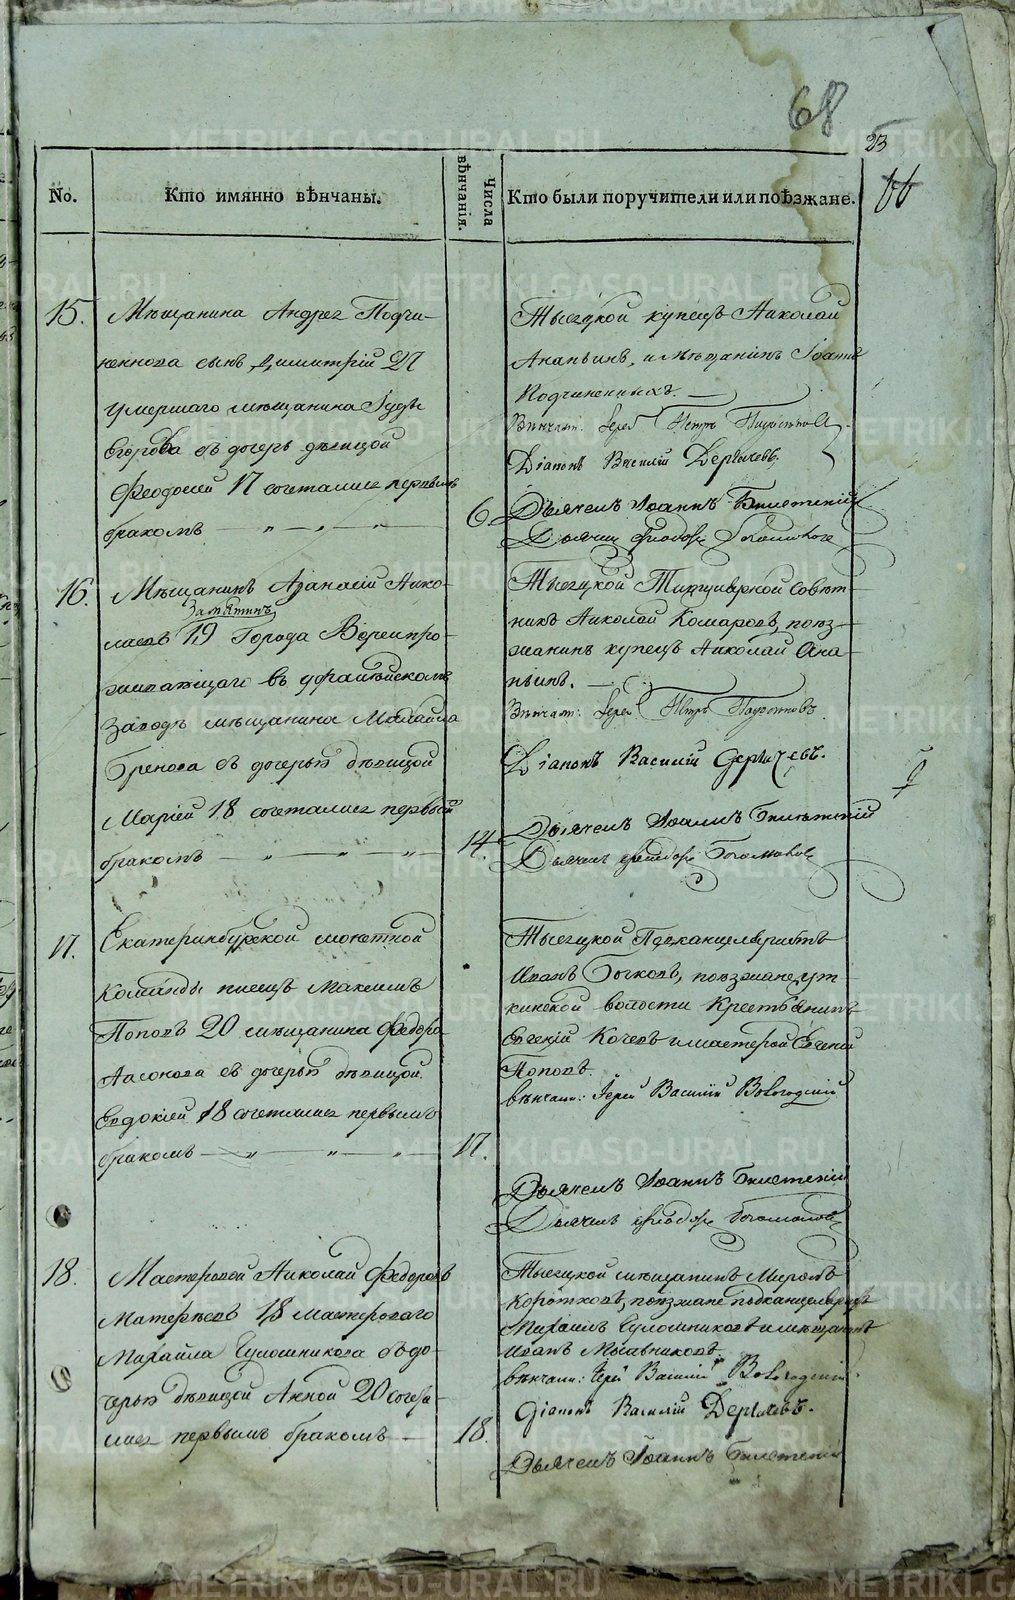 68
23
No.
Кто имянно вѣнчаны.
Числа вѣнчанія.
Кто были поручители или поѣзжане.
15.
Мѣщанина Андрея Подчи-
неннова сынъ Димитрій 21
умершаго мѣщанина Іуды
Егорова съ дочерь дѣвицой
Феодосіей 17 сочетались первымъ
бракомъ
6.
Тысецкой купецъ Николай
Ананьинъ, и мѣщанинъ Іоаннъ
Подчиненныхъ.
Вѣнчал: Іерей Петръ
Діаконъ Василій Дерягевъ.
Дьячекъ Іоаннъ
Дьячекъ Феодоръ Богомоловъ
16.
Мѣщанинъ Афанасій Нико-
Замятинъ
лаевъ 19 Города Верхи про-
живающаго въ Уфалейскомъ
заводѣ мѣщанина Михайла
съ дочерью дѣвицой
Маріей 18 сочетались первым
бракомъ
14.
Тысецкой Титулярной Совѣт-
никъ Николай Комаровъ, поѣз-
жанинъ купецъ Николай Ана-
ньинъ.
Вѣнчал: Іерей Петръ
Діаконъ Василій
Дьячекъ Іоаннъ
Дьячекъ Феодоръ Богомоловъ
17.
Екатеринбурской монетной
Команды писецъ Максимъ
Поповъ 20 мѣщанина Федора
съ дочерью дѣвицой
Евдокіей 18 сочетались первымъ
бракомъ
17.
Тысецкой Подканцеляристъ
Иванъ Бочковъ, поѣзжане Ут-
кинской волости Крестьянинъ
Евгеній Кочевъ и мастеровой Евгеній
Поповъ.
вѣнчали: Іерей Василій Вологодскій
Дьячекъ Іоаннъ
Дьячекъ Феодоръ Богомоловъ
18.
Мастеровой Николай Федоровъ
18 мастероваго
Михайла Чуломникова съ до-
черью дѣвицой Анной 20 сочета-
лись первымъ бракомъ
18.
Тысецкой мѣщанинъ Миронъ
Коротковъ, поѣзжане подканцеляристъ
Михаилъ Чуломниковъ и мѣщанинъ
Иванъ
вѣнчали: Іерей Василій Вологодскій.
Діаконъ Василій
Дьячекъ Іоаннъ
METRIKI.GASO-URAL.RU